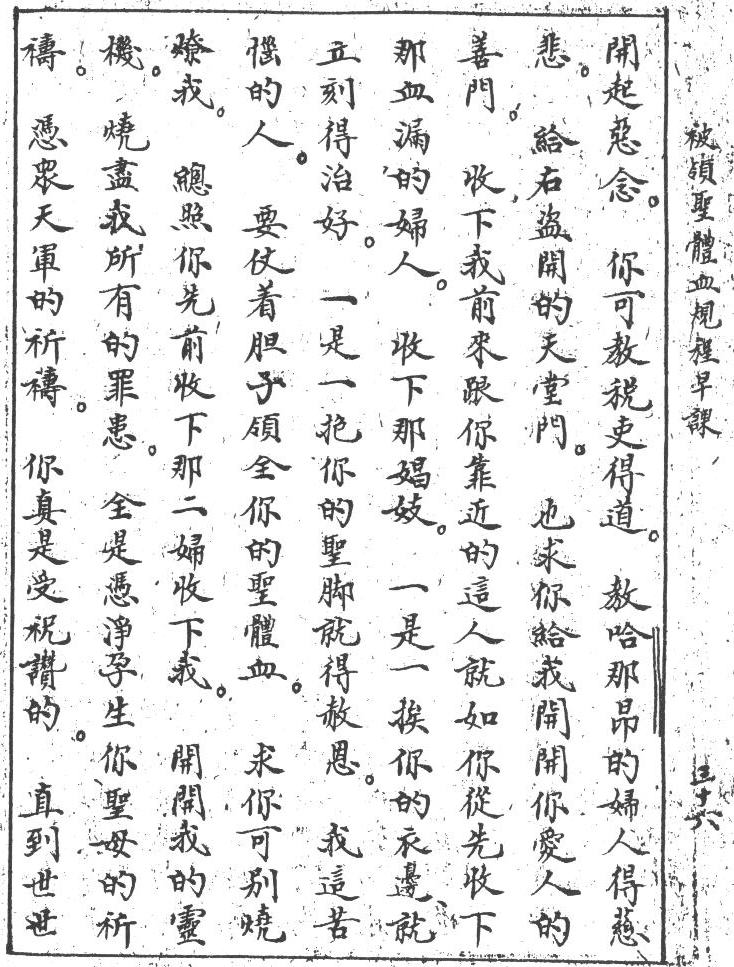 被領聖體血規程早課
三十六
開起惡念。你可教稅吏得道。教哈那昂的婦人得慈
悲。給右盜開的天堂門。也求你給我開開你愛人的
善門。收下我前來跟你靠近的這人就如你從先收下
那血漏的婦人。收下那娼妓。一是一挨你的衣邊就
立刻得治好。一是一抱你的聖脚就得赦恩。我這苦
惱的人。要仗着胆子領全你的聖體血。求你可别燒
燎我。總照你先前收下那二婦收下我。開開我的靈
機。燒盡我所有的罪患。全是憑淨孕生你聖母的祈
禱。憑眾天軍的祈禱。你真是受祝讚的。直到世世